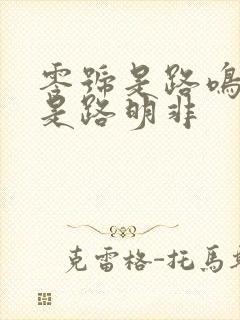 零號是路鳴
是路明非
克雷格-托馬斯